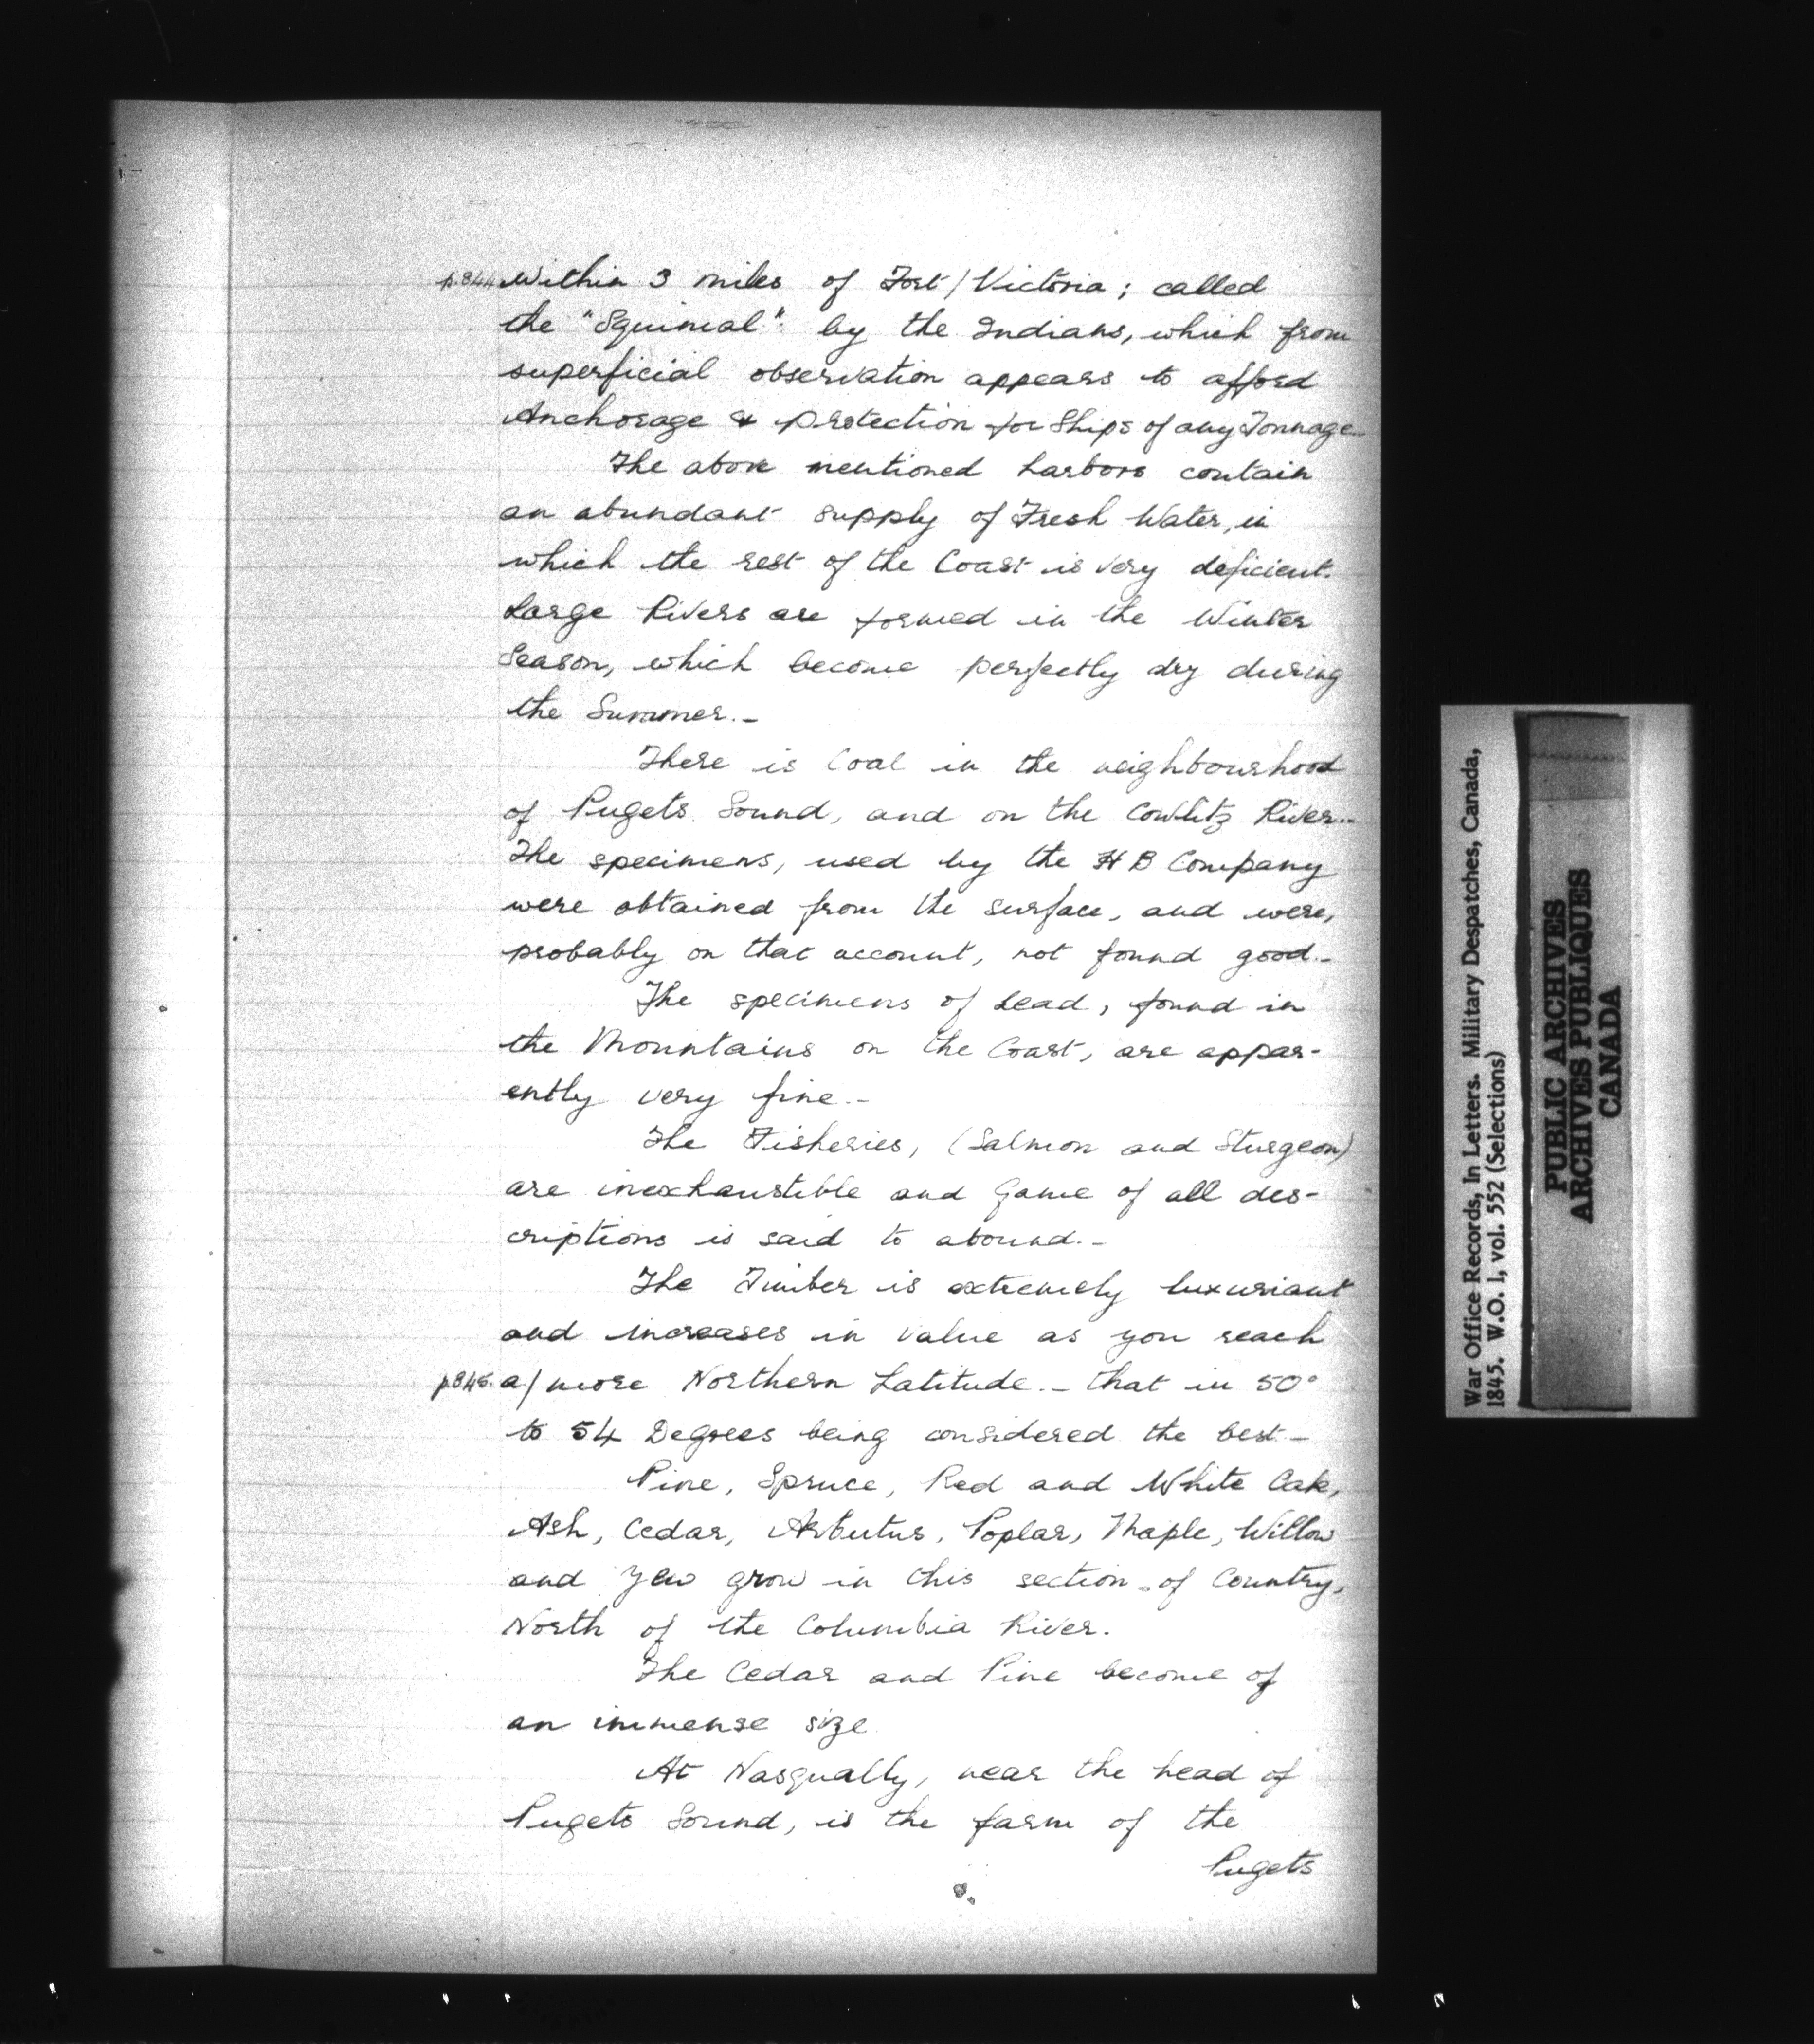 p.844. within 3 miles of Fort / Victoria; called
the "Squimal" by the Indians, which from
superficial observation appears to afford
Anchorage & protection for Ships of any Tonnage
The above mentioned harbors contain
an abundant supply of Fresh Water, in
which the rest of the Coast is very deficient.
Large Rivers are formed in the Winter
Season, which become perfectly dry during
the Summer.-
There is Coal in the neighbourhood
of Pugets Sound, and on the Cowlitz River.-
The specimens, used by the H B Company
were obtained from the surface, and were,
probably on that account, not found good.-
The specimens of Lead, found in
the Mountains on the Coast, are appar-
ently very fine.-
The Fisheries, (Salmon and Sturgeon)
are inexhaustible and Game of all des-
criptions is said to abound.-
The Timber is extremely luxuriant
and increases in value as you reach
p.845. a/ more Northern Latitude.- that in 50°
to 54 Degrees being considered the best-
Pine, Spruce, Red and White Oak,
Ash, Cedar, Arbutus, Poplar, Maple, Willow
and Yew grow in this section of Country,
North of the Columbia River.
The Cedar and Pine become of
an immense size
At Nasqually, near the head of
Pugets Sound, is the farm of the
Pugets
War Office Records, In Letters. Military Despatches, Canada,
1845. W.O. 1, vol. 552 (Selections)
PUBLIC ARCHIVES
ARCHIVES PUBLIQUES
CANADA